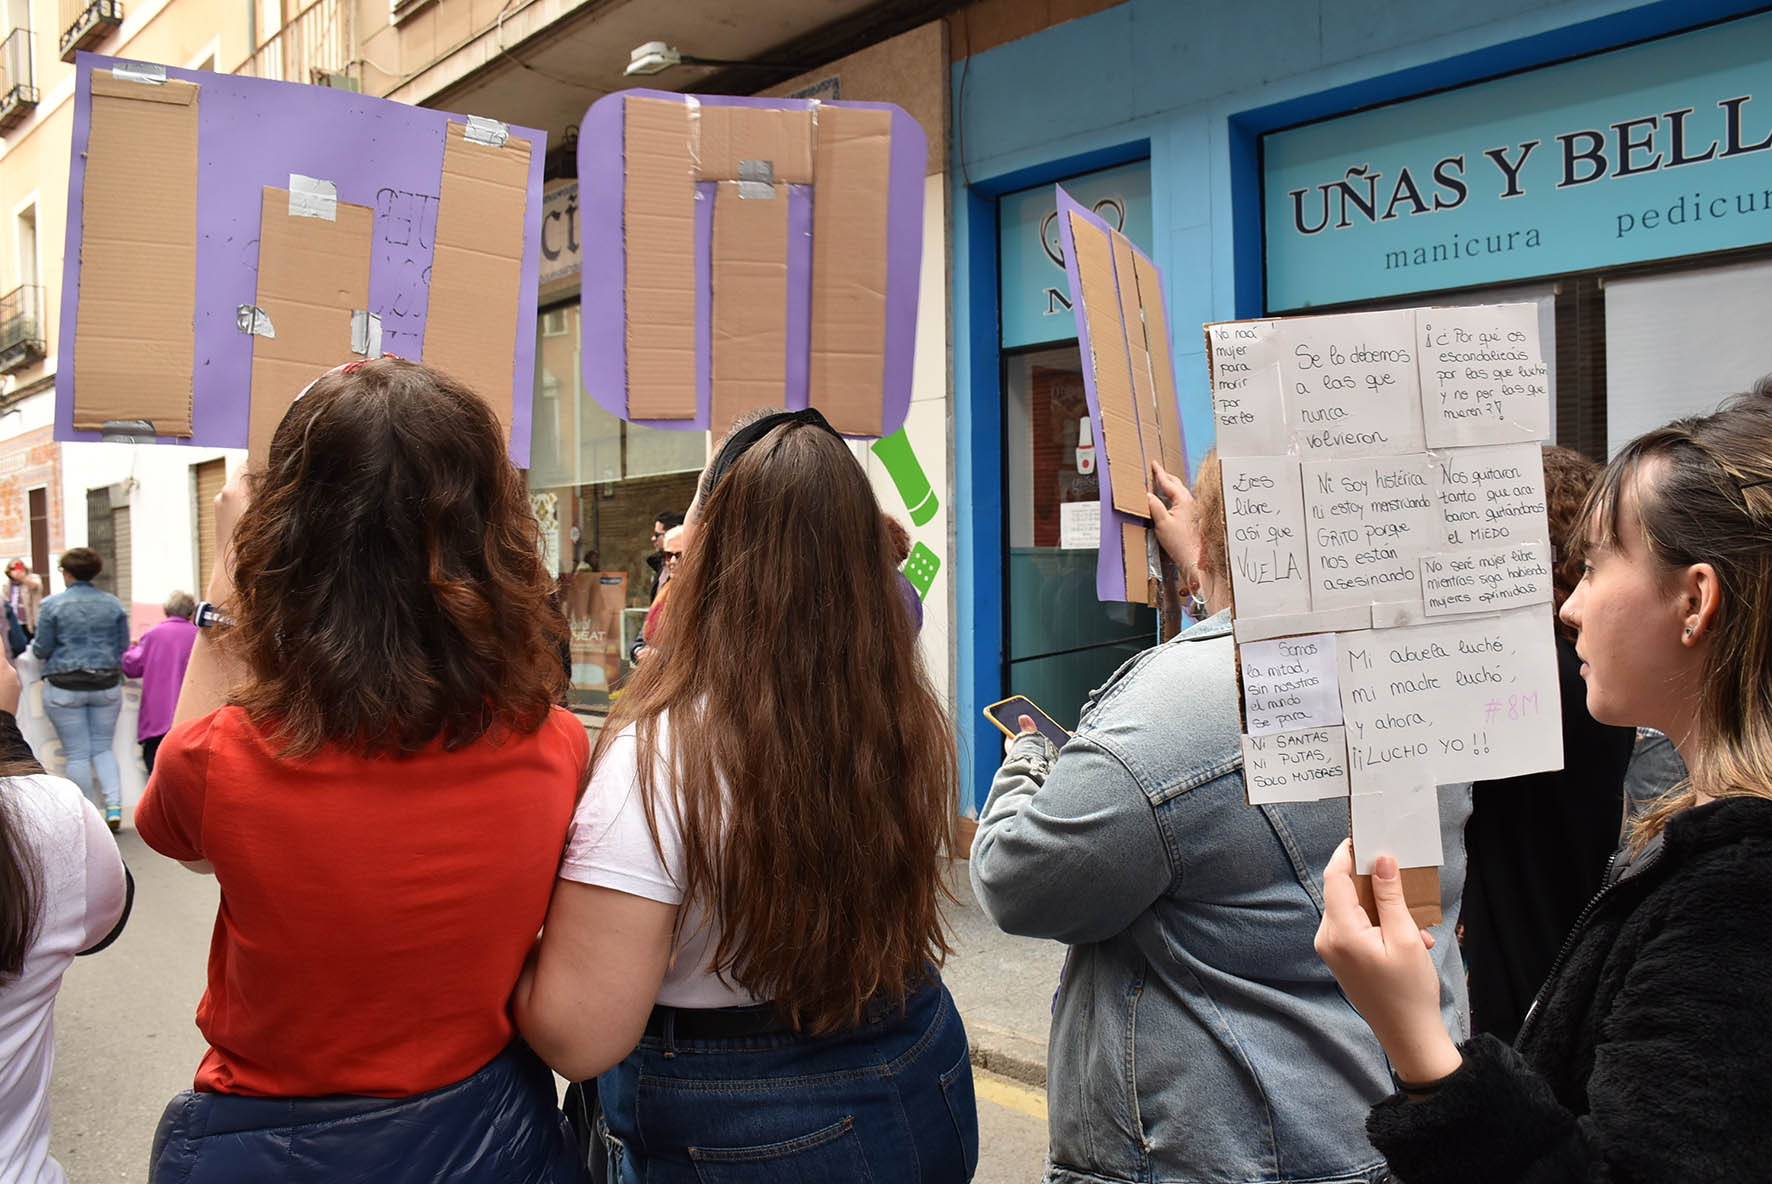 UÑAS Y BELL
manicura
pedicur
ci
HEAT
No nací
mujer
para
morir
por
serlo
Se lo debemos
a las que
nunca
volvieron
¡¿Por qué os
escandalizáis
por las que luchan
y no por las que
mueren?!
Eres
libre,
así que
VUELA
Ni soy histérica
ni estoy menstruando
GRITO porque
nos están
asesinando
Nos quitaron
tanto que aca
baron quitándonos
el MIEDO
No seré mujer libre
mientras siga habiendo
mujeres oprimidas.
Somos
la mitad,
sin nosotras
el mundo
se para
Ni SANTAS
Ni PUTAS,
SOLO MUJERES
Mi abuela luchó,
mi madre luchó,
y ahora,
#8M
¡¡LUCHO YO!!